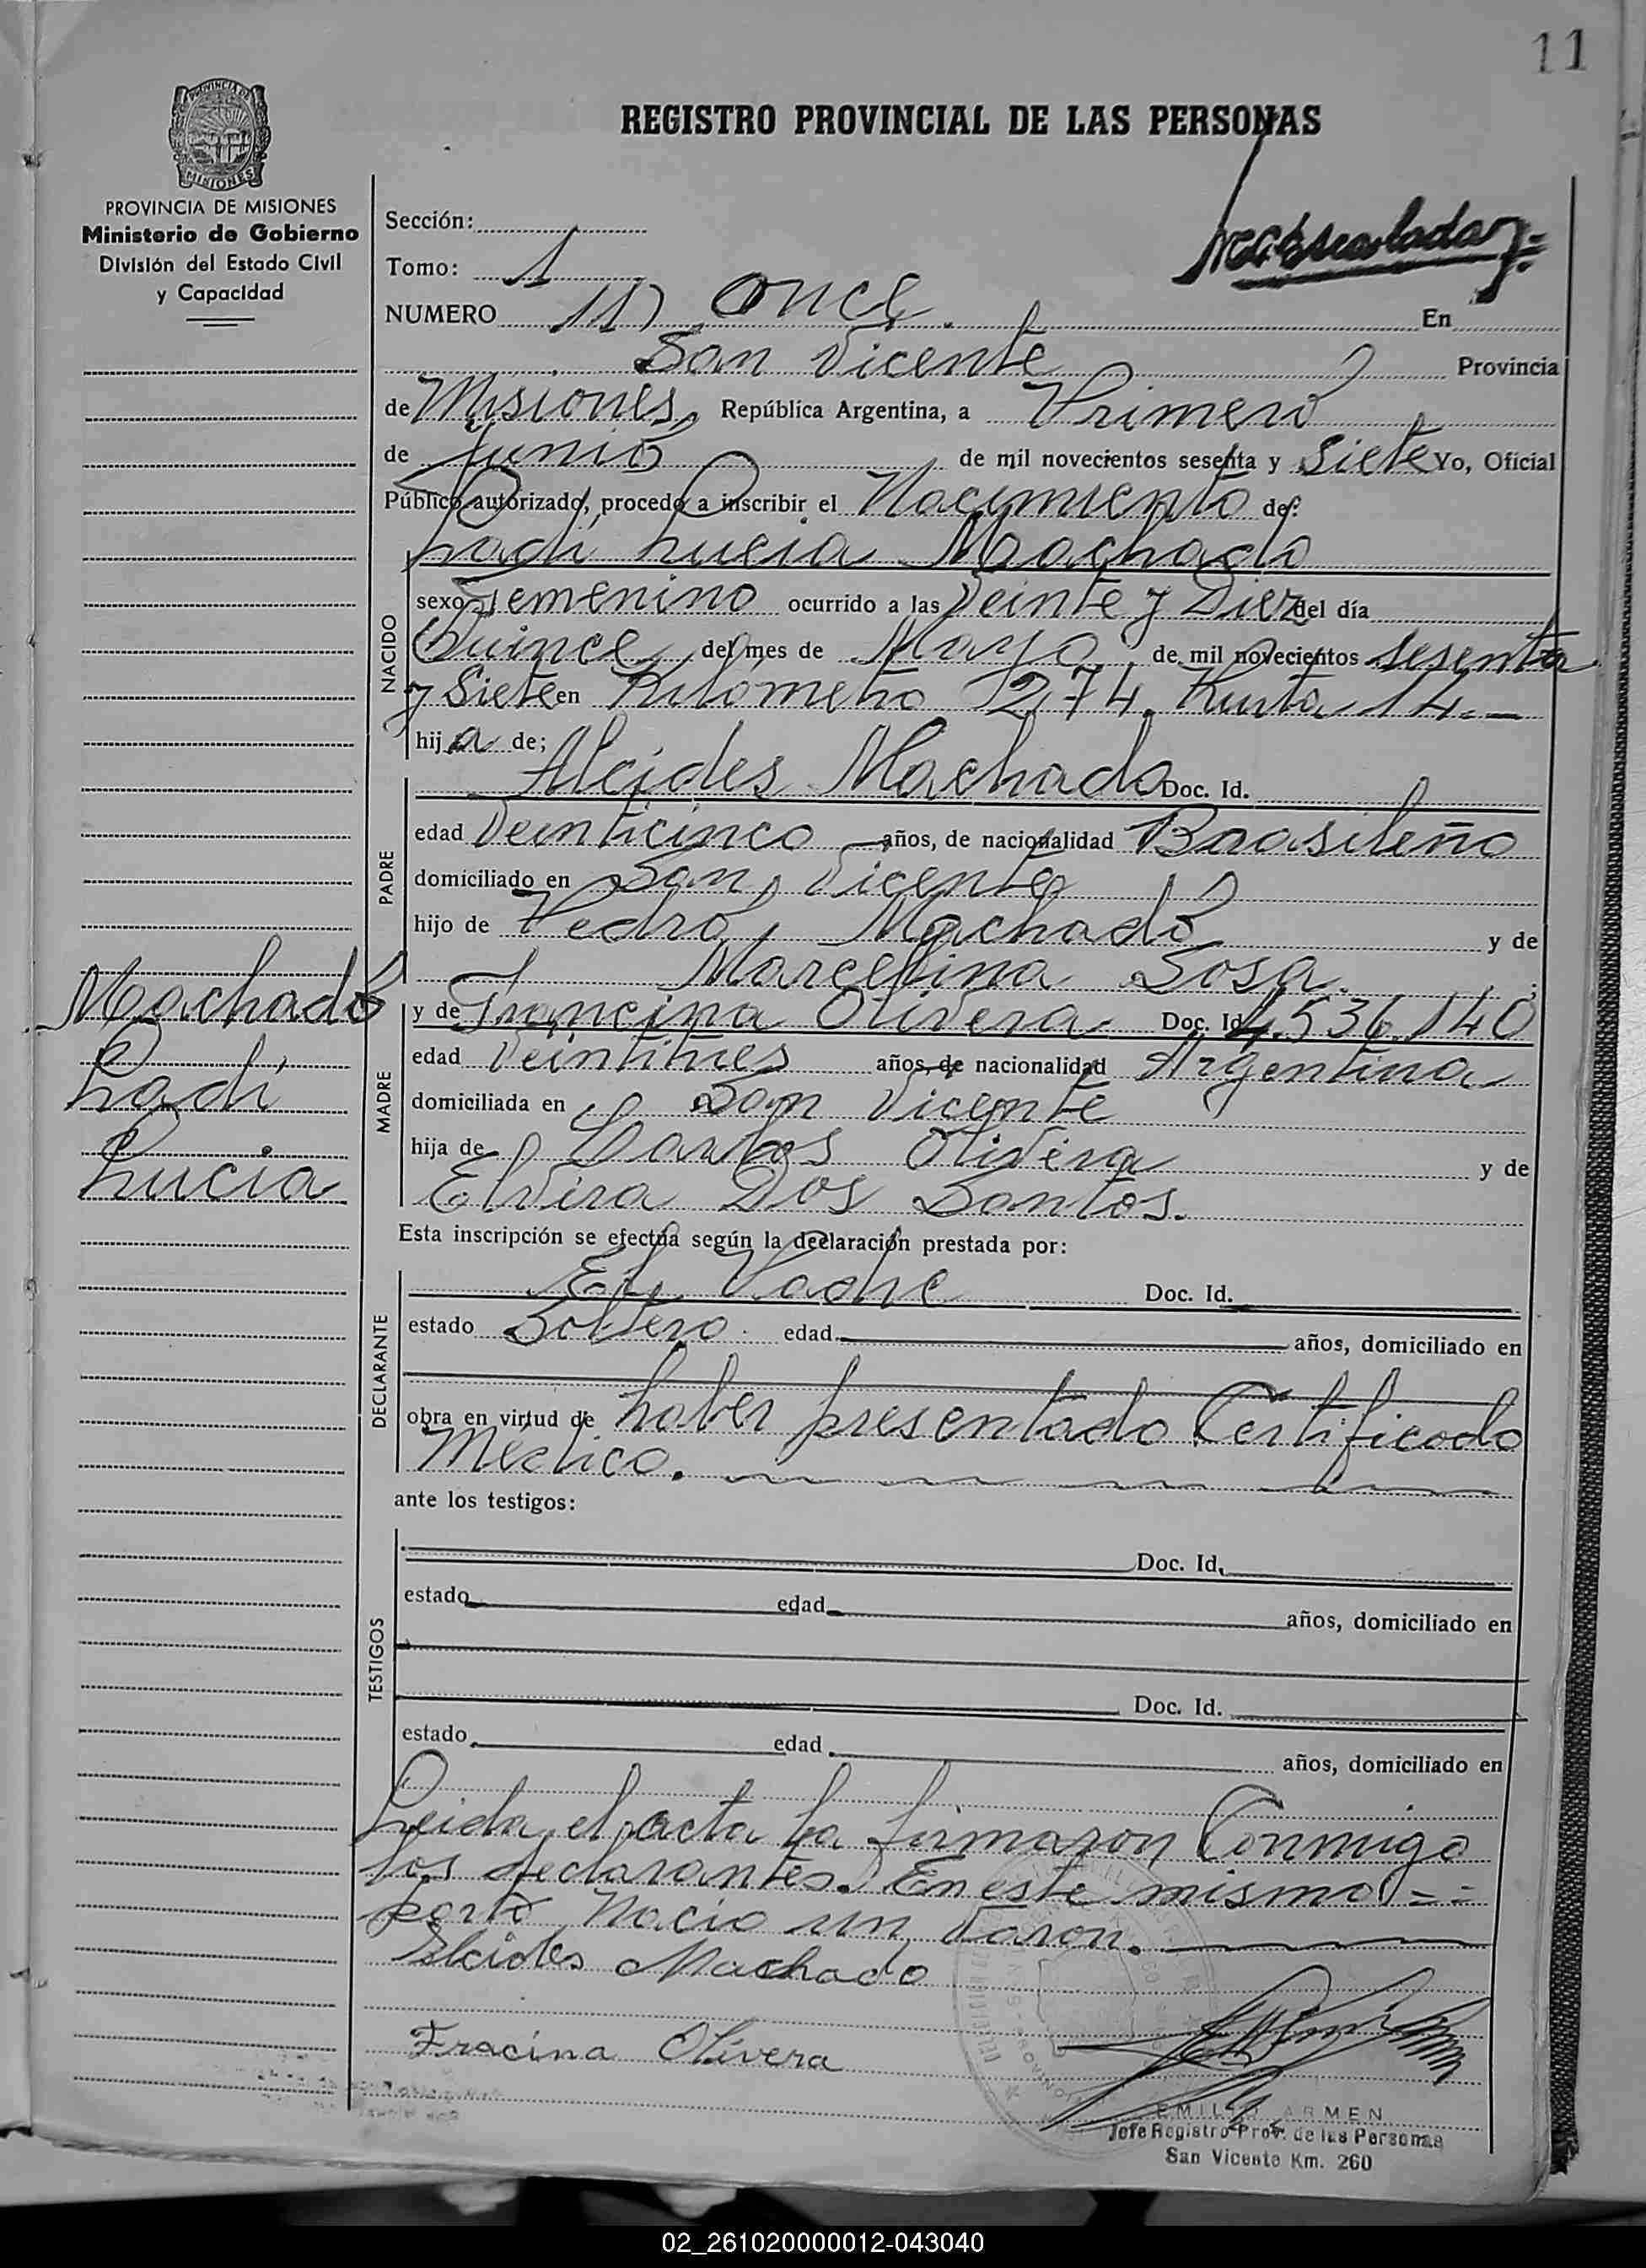 11
REGISTRO PROVINCIAL DE LAS PERSONAS
PROVINCIA DE
MISIONES
PROVINCIA DE MISIONES
Ministerio de Gobierno
División del Estado Civil
y Capacidad
Sección:
Tomo: 1
NUMERO 11) once. En
San Vicente Provincia
de Misiones, República Argentina, a Primero
de Junio de mil novecientos sesenta y Siete Yo, Oficial
Público autorizado, procedo a inscribir el Nacimiento de:
Ladi Lucia Machado
NACIDO
sexo Femenino ocurrido a las Veinte y Diez del día
Quince del mes de Mayo de mil novecientos sesenta
y Siete en Kilometro 1274. Ruta 14.-
hija de;
PADRE
Alcides Machado Doc. Id.
edad Veinticinco años, de nacionalidad Brasileño
domiciliado en San Vicente
hijo de Pedro Machado y de
Marcelina Sosa.
Machado
Ladi
Lucia
MADRE
y de Francina Olivera Doc. Id. 4.536.140
edad Veintitres años, de nacionalidad Argentina
domiciliada en San Vicente
hija de Carlos Olivera y de
Elvira Dos Santos.
Esta inscripción se efectúa según la declaración prestada por:
DECLARANTE
El Padre Doc. Id.
estado Soltero. edad años, domiciliado en
obra en virtud de haber presentado Certificado
Médico.
ante los testigos:
TESTIGOS
Doc. Id.
estado edad años, domiciliado en
Doc. Id.
estado edad años, domiciliado en
Leida el acta la firmaron Conmigo
los declarantes. En este mismo = =
parto Nacio un Varon.
Elcides Machado
Fracina Olivera
EMILIO ARMEN
Jefe Registro Prov. de las Personas
San Vicente Km. 260
02_261020000012-043040